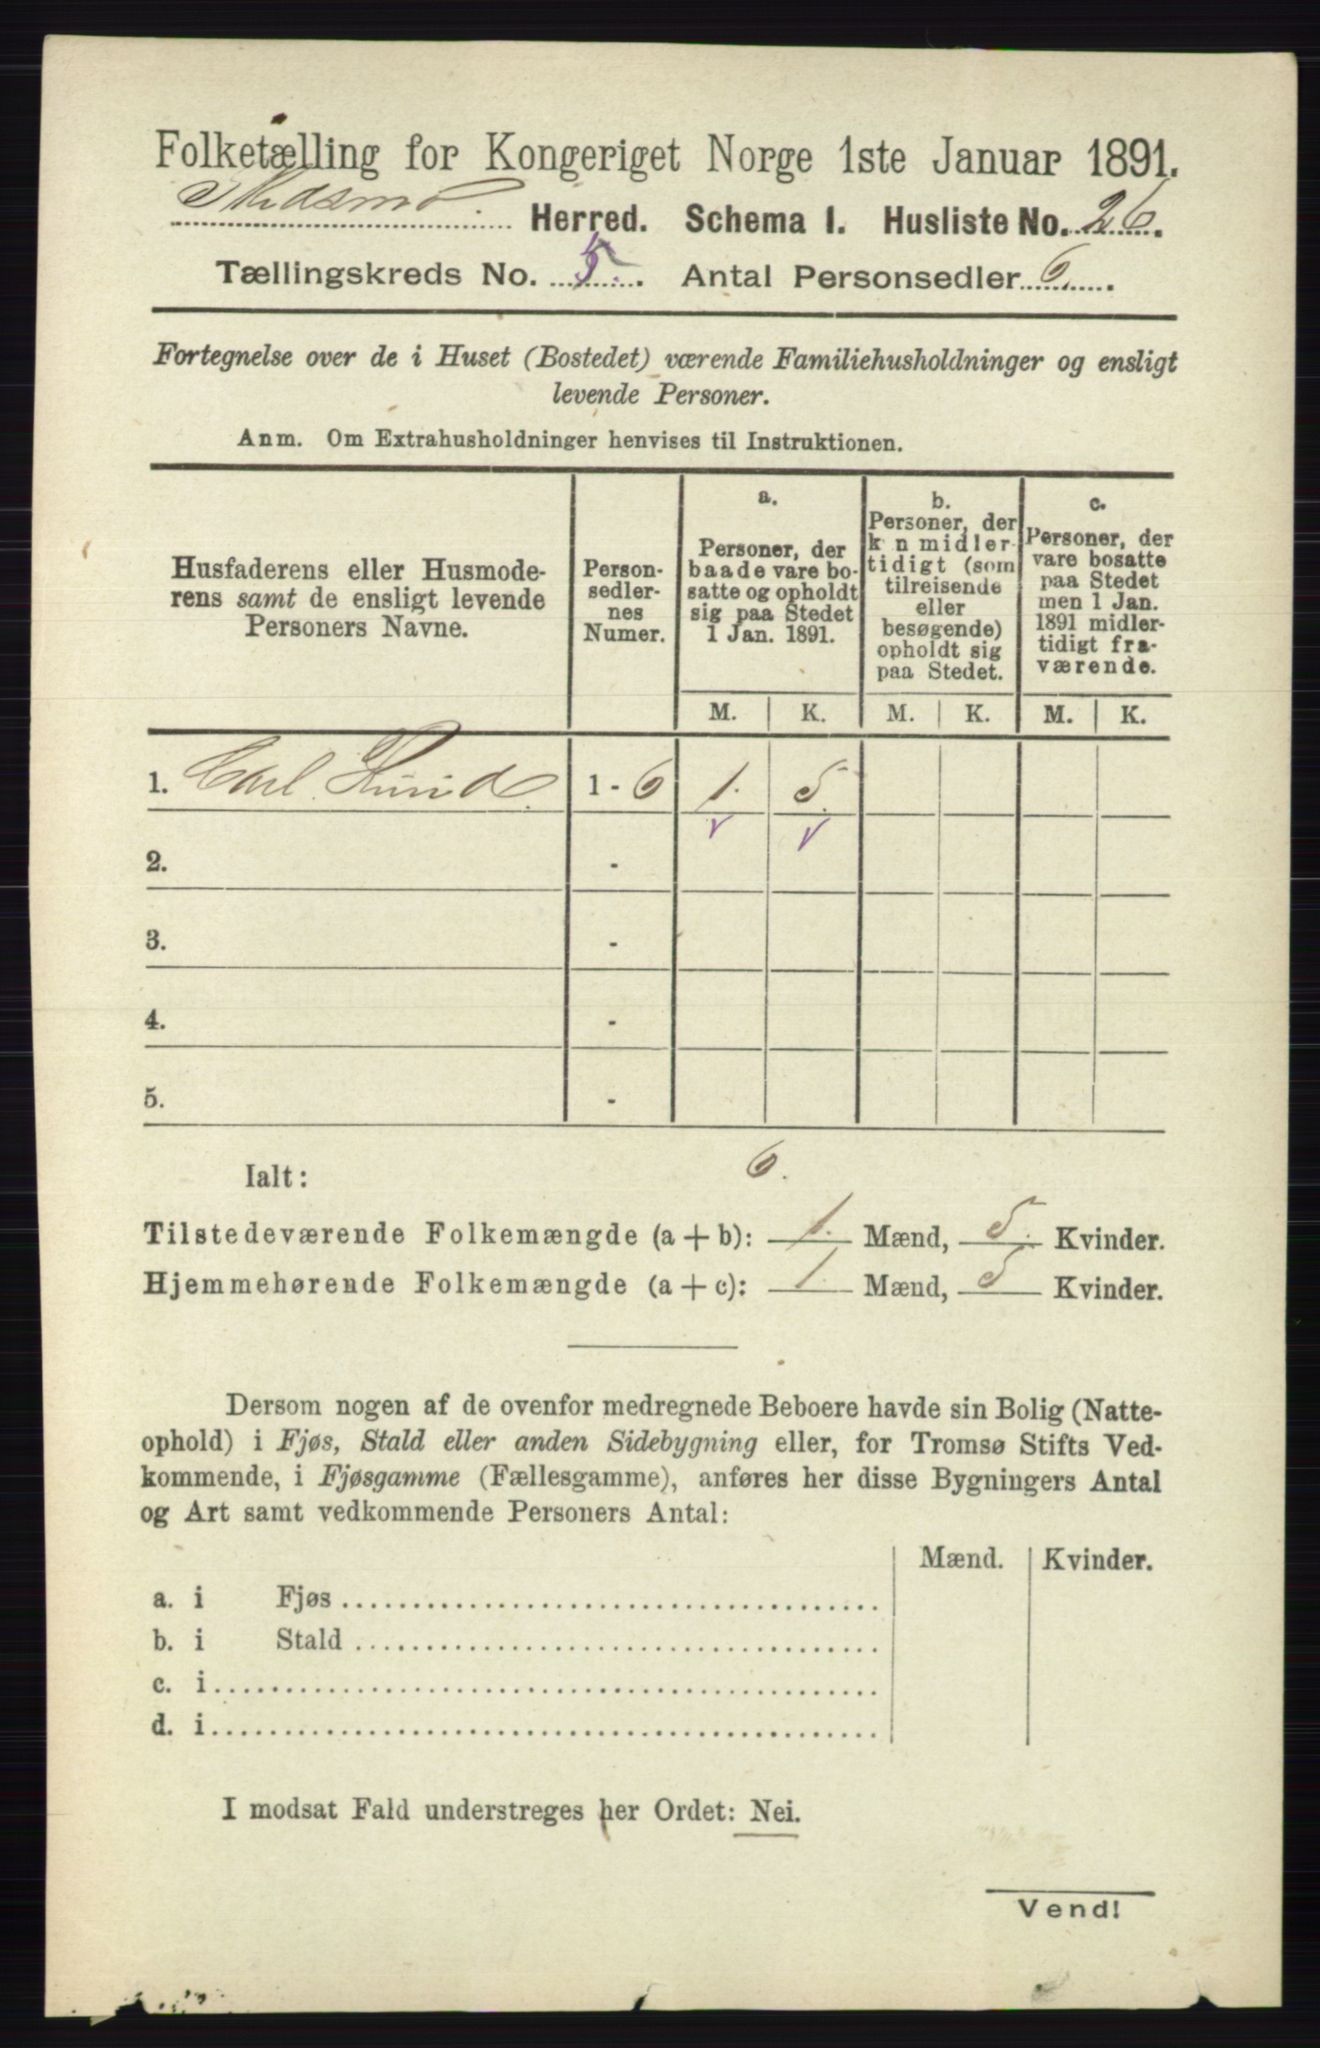 Folketælling for Kongeriget Norge 1ste Januar 1891.
Skedsmo. Herred. Schema 1. Husliste No. 26.
Tællingskreds No. 5. Antal Personsedler 6.
Fortegnelse over de i Huset (Bostedet) værende Familiehusholdninger og ensligt
levende Personer.
Anm. Om Extrahusholdninger henvises til Instruktionen.
Husfaderens eller Husmode-
rens samt de ensligt levende
Personers Navne.
Person-
sedler-
nes
Numer.
a.
Personer, der
baade vare bo-
satte og opholdt
sig paa Stedet
1 Jan. 1891.
b.
Personer, der
k n midler-
tidigt (som
tilreisende
eller
besøgende)
opholdt sig
paa Stedet.
c.
Personer, der
vare bosatte
paa Stedet
men 1 Jan.
1891 midler-
tidigt fra-
værende.
M. K. M. K. M. K.
1. Carl 1 - 6 1. 5.
v v
2. -
3. -
4. -
5. -
Ialt: 6.
Tilstedeværende Folkemængde (a + b): 1. Mænd, 5. Kvinder.
Hjemmehørende Folkemængde (a + c): 1. Mænd, 5 Kvinder.
Dersom nogen af de ovenfor medregnede Beboere havde sin Bolig (Natte-
ophold) i Fjøs, Stald eller anden Sidebygning eller, for Tromsø Stifts Ved-
kommende, i Fjøsgamme (Fællesgamme), anføres her disse Bygningers Antal
og Art samt vedkommende Personers Antal:
Mænd. Kvinder.
a. i Fjøs
b. i Stald
c. i
d. i
I modsat Fald understreges her Ordet: Nei.
Vend!